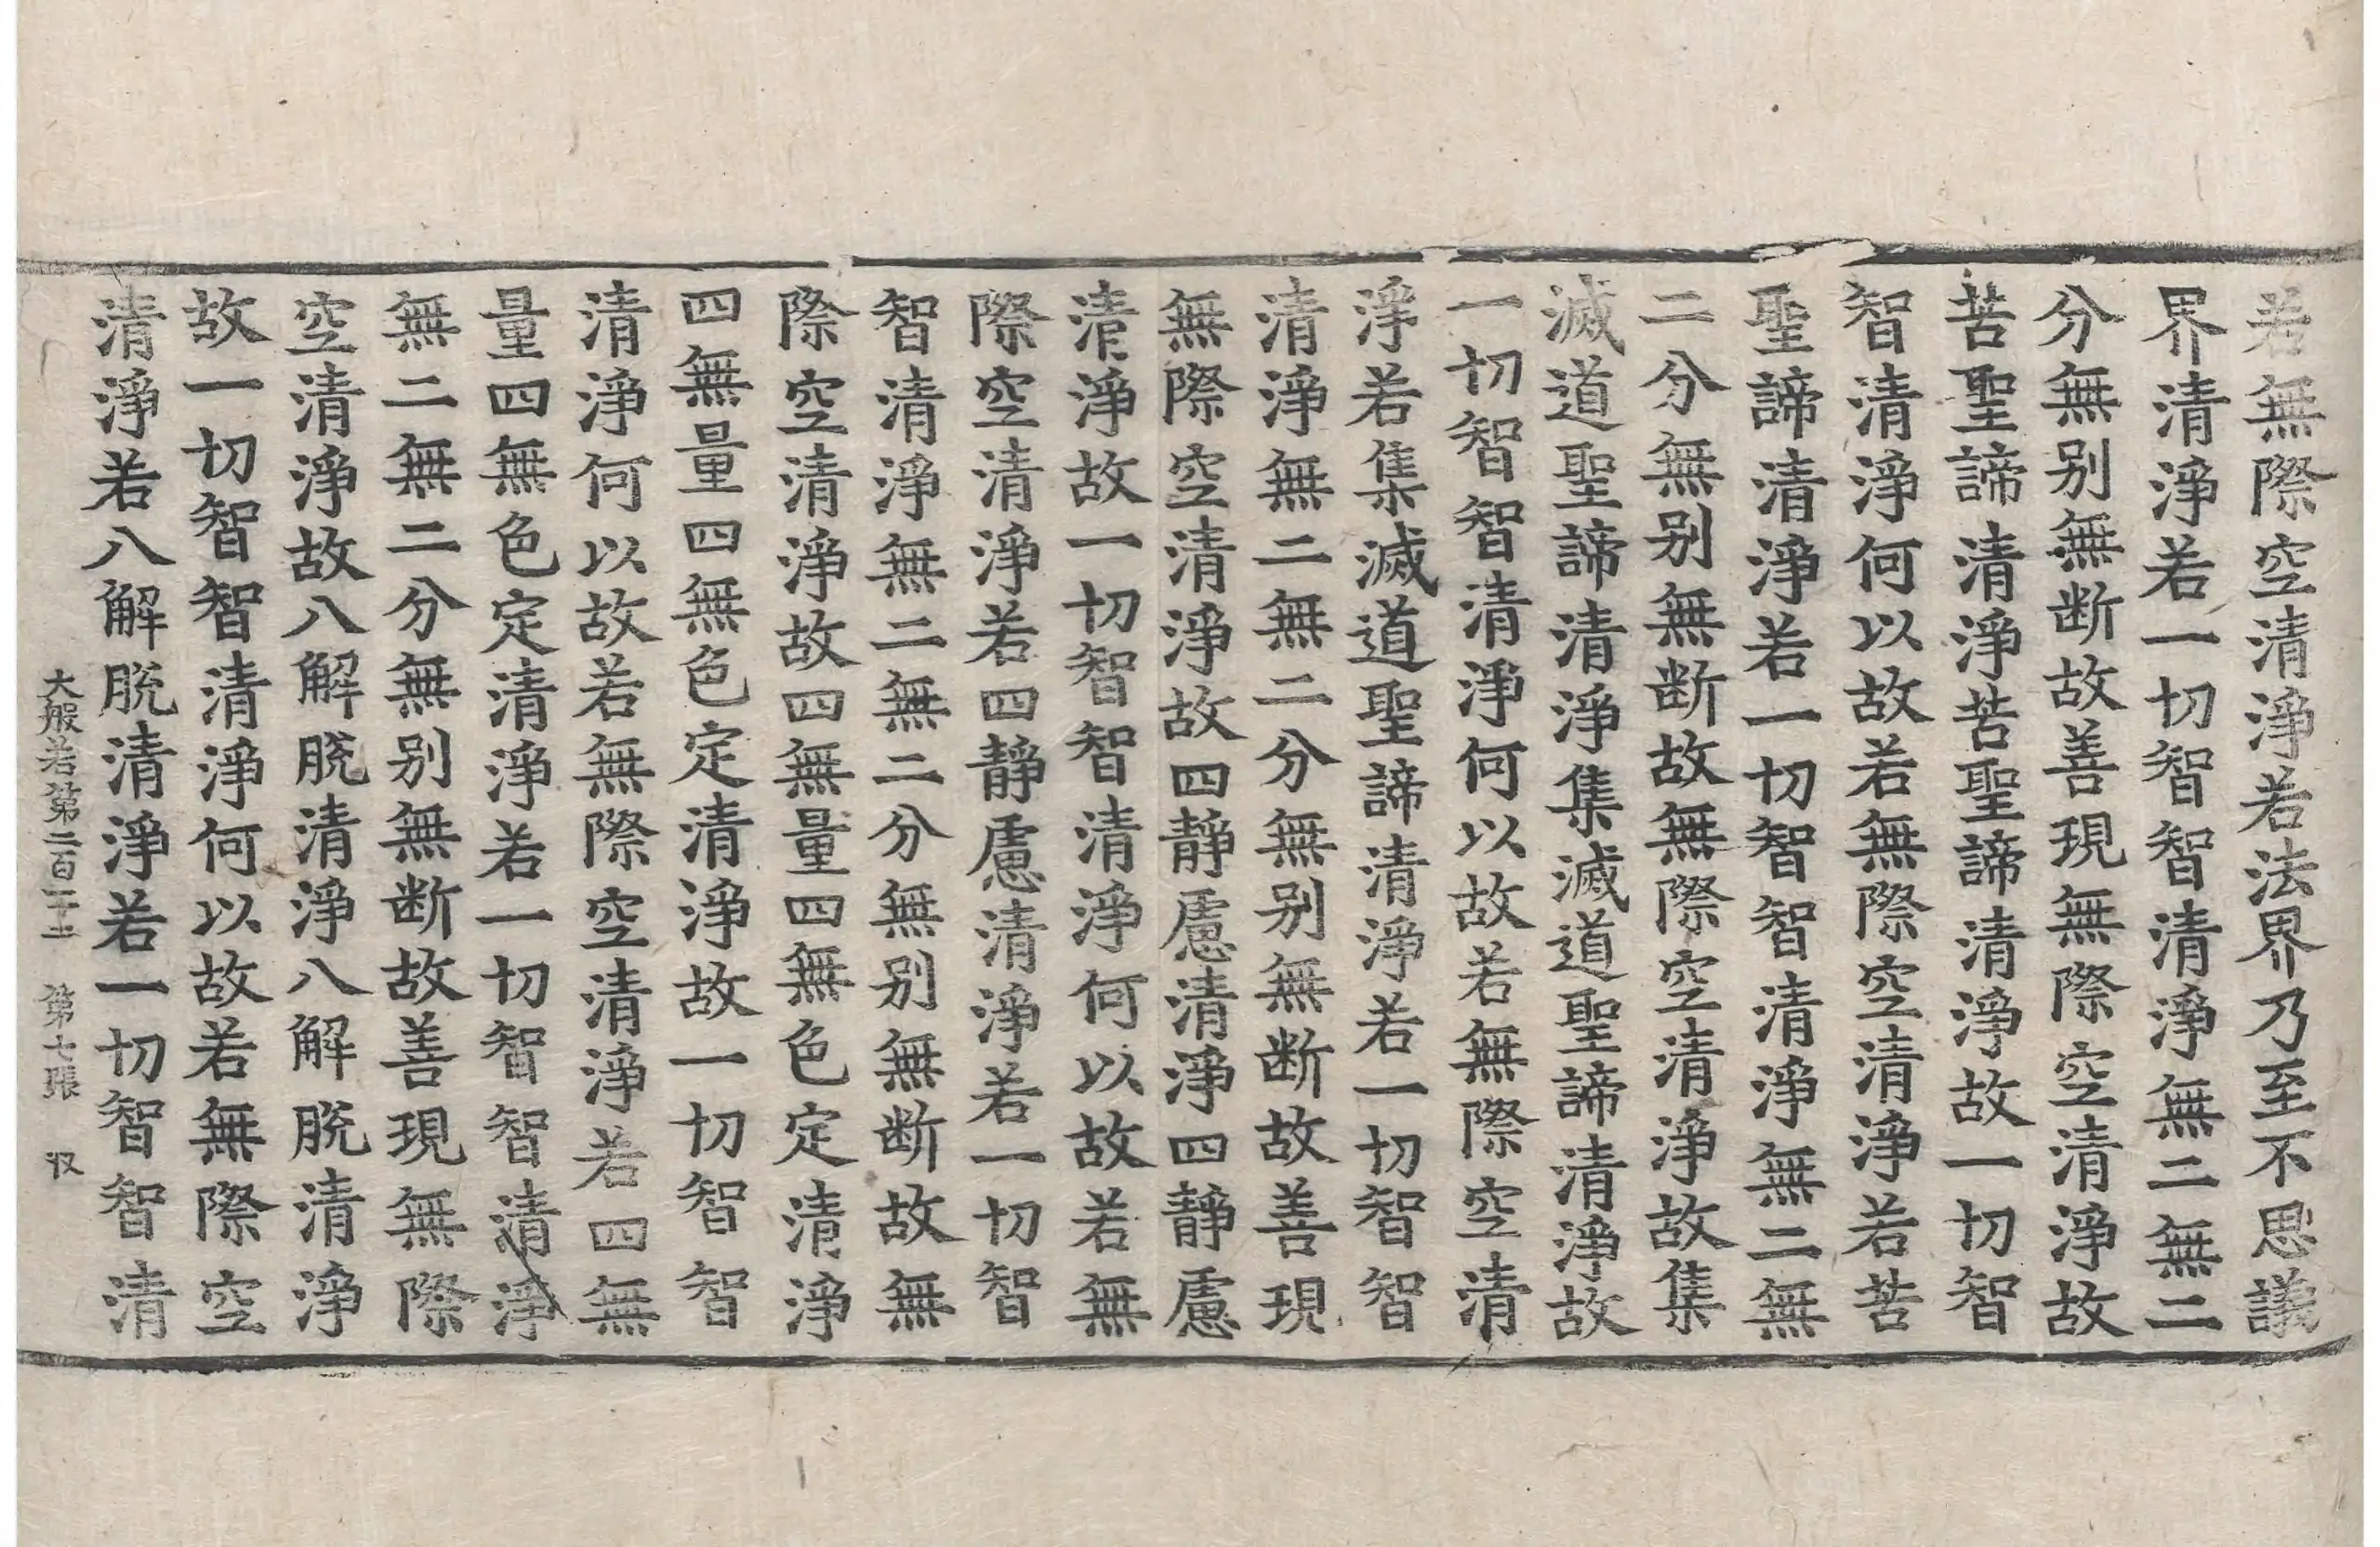 若無際空清淨若法界乃至不思議
界清淨若一切智智清淨無二無二
分無别無断故善現無際空清淨故
苦聖諦清淨苦聖諦清淨故一切智
智清淨何以故若無際空清淨若苦
聖諦清淨若一切智智清淨無二無
二分無别無断故無際空清淨故集
滅道聖諦清淨集滅道聖諦清淨故
一切智智清淨何以故若無際空清
淨若集滅道聖諦清淨若一切智智
清淨無二無二分無别無断故善現
無際空清淨故四靜慮清淨四靜慮
清淨故一切智智清淨何以故若無
際空清淨若四靜慮清淨若一切智
智清淨無二無二分無别無断故無
際空清淨故四無量四無色定清淨
四無量四無色定清淨故一切智智
清淨何以故若無際空清淨若四無
量四無色定清淨若一切智智清淨
無二無二分無别無断故善現無際
空清淨故八解脫清淨八解脫清淨
故一切智智清淨何以故若無際空
清淨若八解脫清淨若一切智智清
大般若第二百一十二 第七張 収